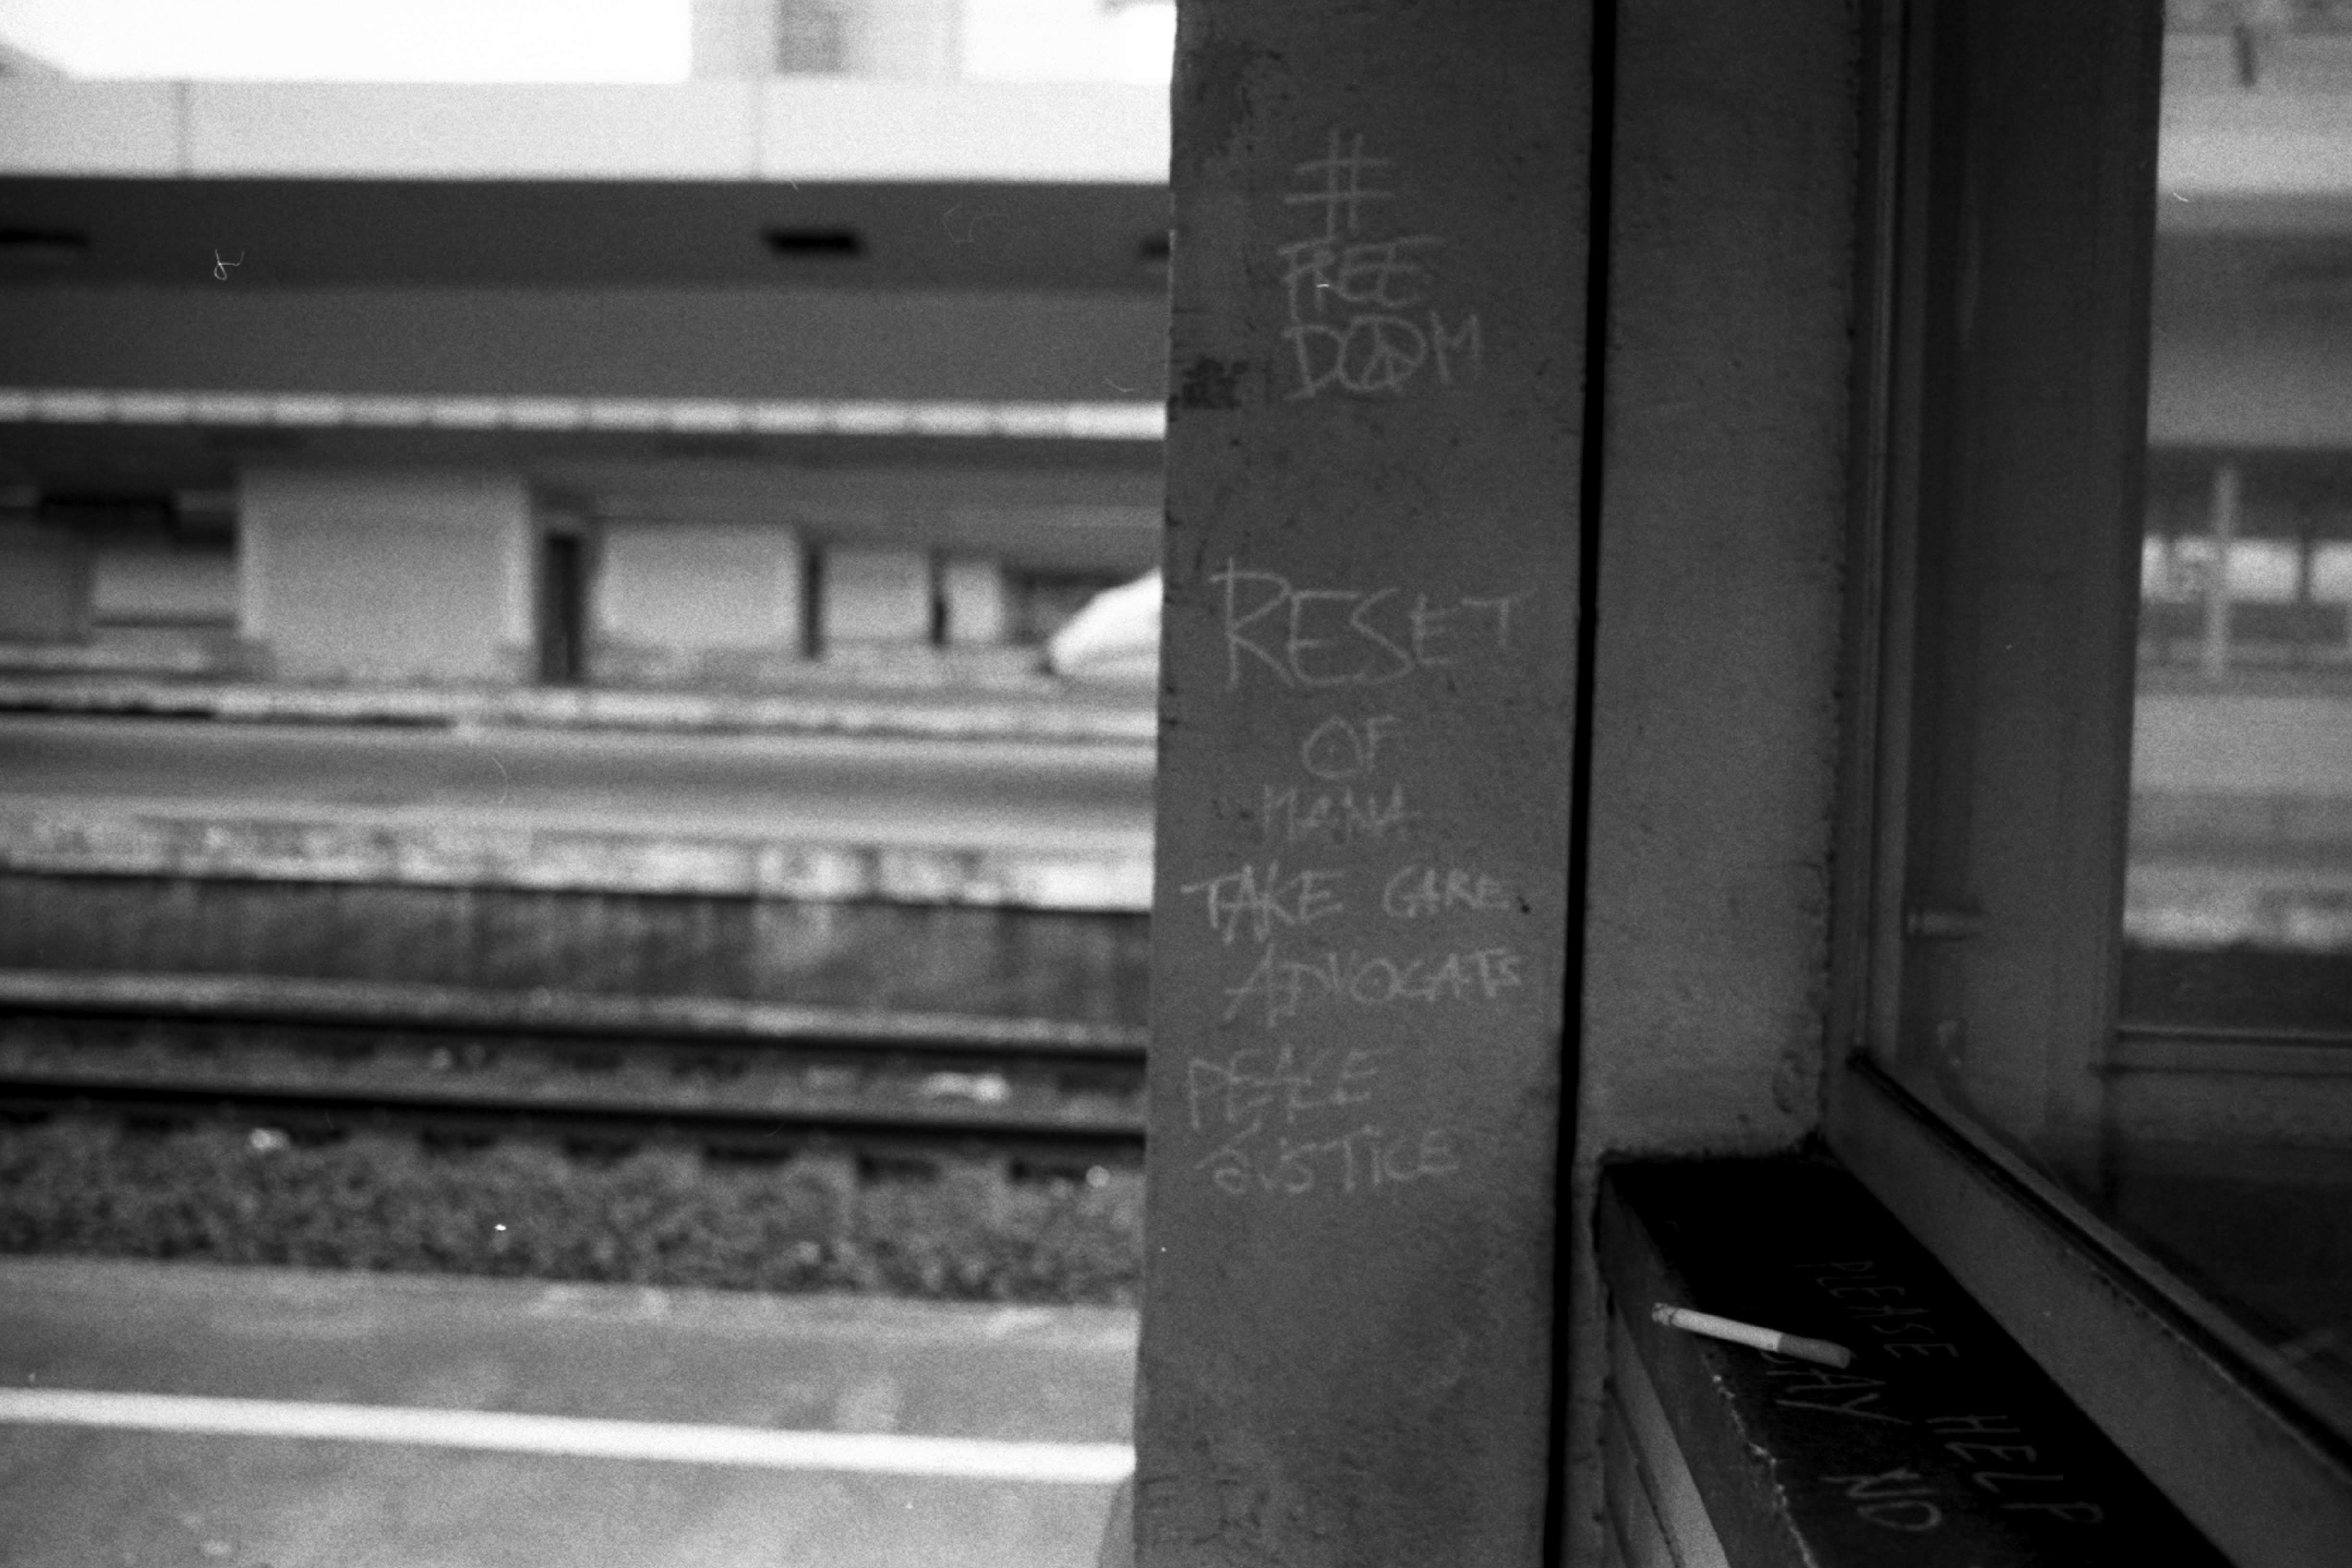 #
FREE
DOOM
RESET
OF
MANA
TAKE CARE
ADVOCATS
PEACE
JUSTICE
PLEASE HELP
SAY NO